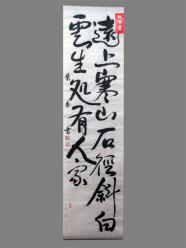 遠上寒山石徑斜白
雲生処有人家